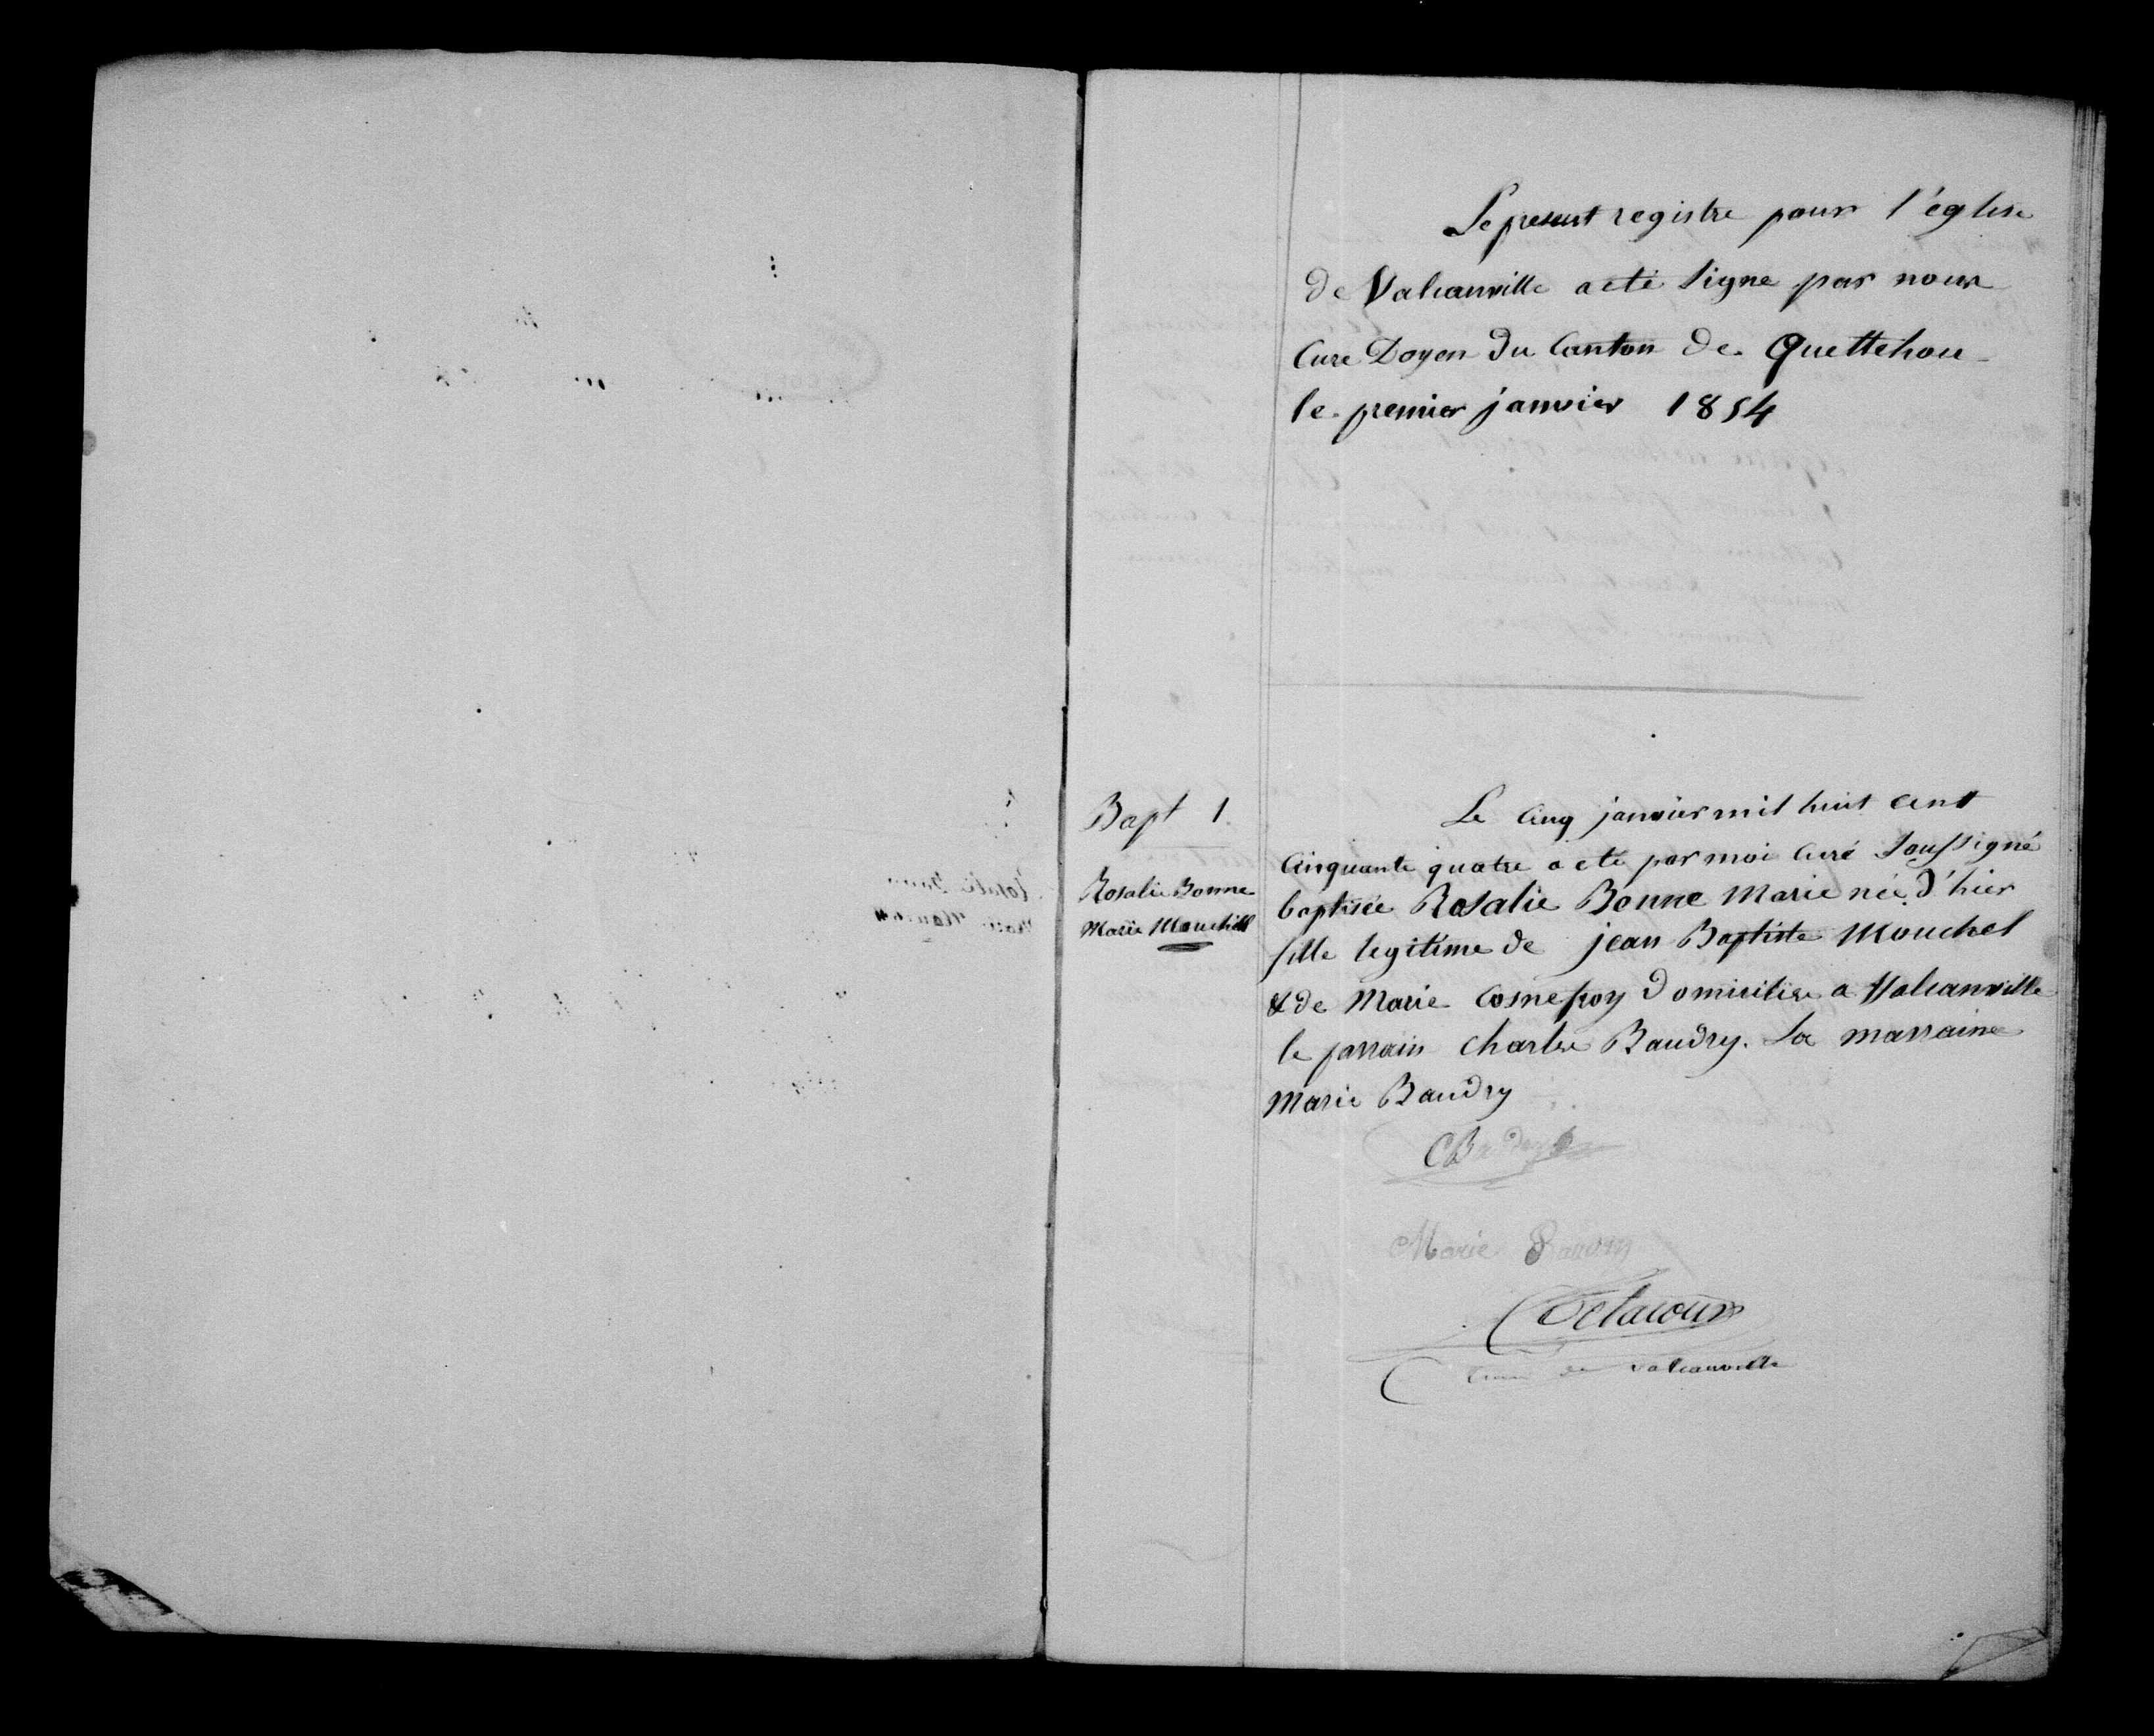 Le present registre pour l'église
de Valcanville a eté signe par nous
Cure Doyen du Canton de Quettehou
le premier janvier 1854
Bapt 1.
Rosalie Bonne
Marie Mouchel
Le cinq janvier mil huit cent
cinquante quatre a eté par moi curé soussigné
baptisée Rosalie Bonne Marie née d'hier
fille legitime de jean Baptiste Mouchel
& de Marie Cosnefroy domiciliés a Valcanville
le parrain charles Baudry. La marraine
Marie Baudry
CBaudry
Marie Baudry
Delacour
Curé de Valcanville